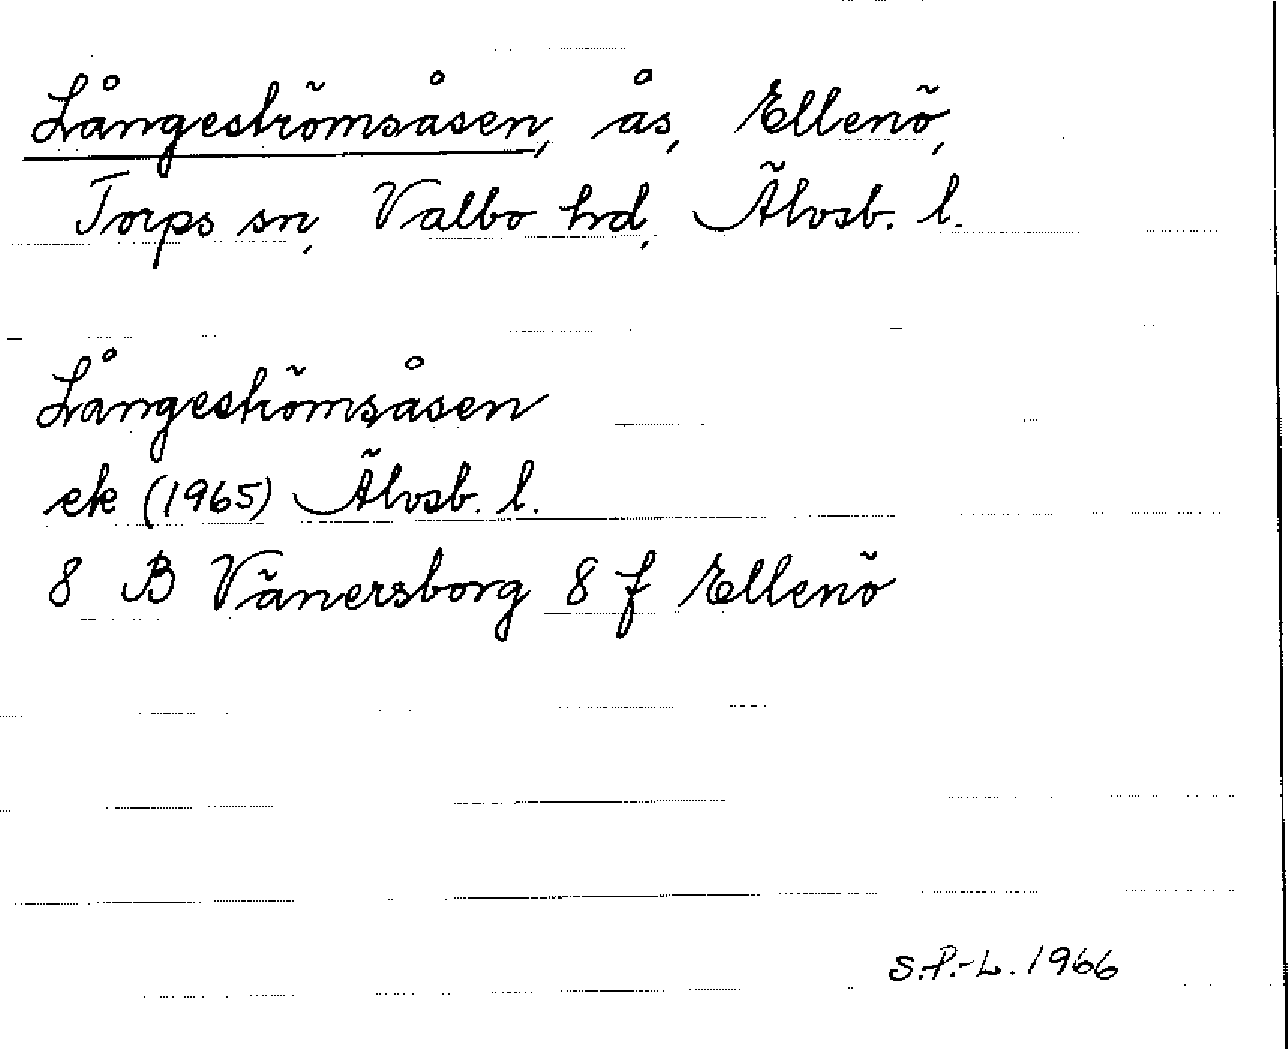 Långeströmsåsen, ås, Ellenö,
Torps sn, Valbo hd, Älvsb. l.
Långeströmsåsen
ek (1965) Älvsb. l.
8 B Vänersborg 8 f Ellenö
S.P.-L. 1966